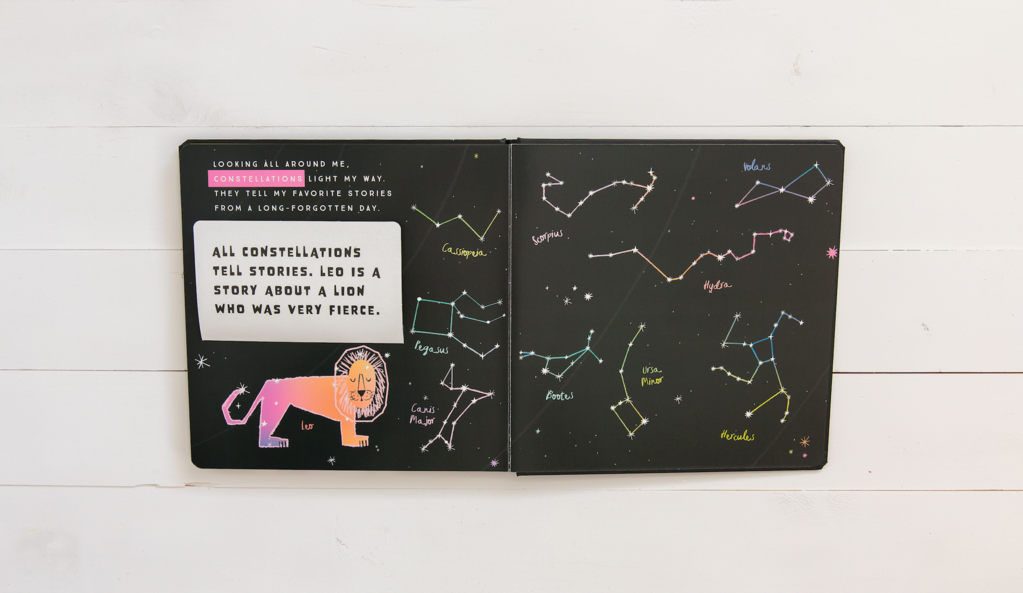 LOOKING ALL AROUND ME,
CONSTELLATIONS LIGHT MY WAY.
THEY TELL MY FAVORITE STORIES
FROM A LONG-FORGOTTEN DAY.
ALL CONSTELLATIONS
TELL STORIES. LEO IS A
STORY ABOUT A LION
WHO WAS VERY FIERCE.
Leo
Cassiopeia
Pegasus
Canis
Major
Scorpius
Volans
Hydra
Bootes
Ursa
Minor
Hercules